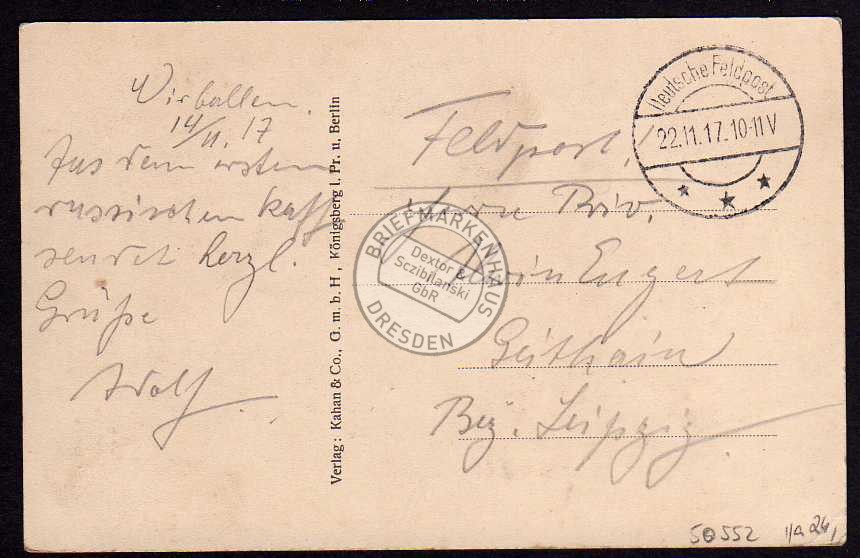 Wirballen.
14/11.17
Aus dem ersten
russischen Kaff
sendet herzl.
Grüße
Adolf.
Verlag: Kahan & Co., G. m. b. H., Königsberg I. Pr. u. Berlin
Deutsche Feldpost
22.11.17.10-11V
Feldpost!
Priv.
Engert
Geithain
Bez. Leipzig
BRIEFMARKENHAUS
Dextor &
Sczibilanski
GbR
DRESDEN
50552
1/a 24,